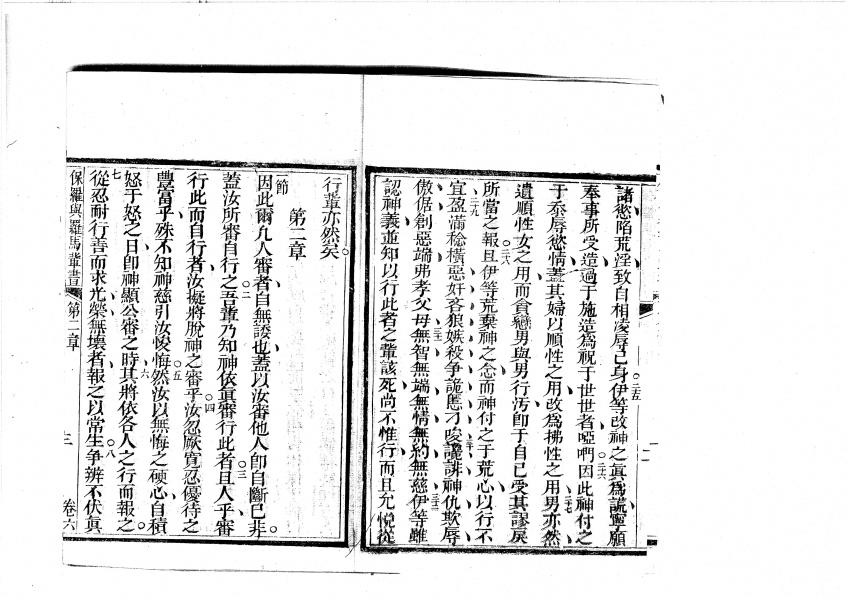 諸慾陷荒淫致自相凌辱己身伊等改神之眞爲謊寧願
二五
奉事所受造過于施造爲祝于世世者啞們因此神付之
二六
于忝辱慾情蓋其婦以順性之用改爲拂性之用男亦然
二七
遺順性女之用而貪戀男與男行汚卽于自己受其謬戾
二八
所當之報且伊等荒棄神之念而神付之于荒心以行不
二九
宜盈滿稔橫惡奸吝狼嫉殺爭詭慝刁唆讒誹神仇欺辱
三十
傲倨創惡端弗孝父母無智無端無情無約無慈伊等雖
三一
三二
認神義並知以行此者之輩該死尚不惟行而且允悅從
行輩亦然矣
第二章
一節
因此爾凡人審者自無諉也蓋以汝審他人卽自斷已非
二
蓋汝所審自行之吾輩乃知神依眞審行此者且人乎審
三
行此而自行者汝擬將脫神之審乎汝忽厥寬忍優待之
四
豊富乎殊不知神慈引汝悛悔然汝以無悔之硬心自積
五
怒于怒之日卽神顯公審之時其將依各人之行而報之
六
七
從忍耐行善而求光榮無壞者報之以常生爭辨不伏眞
八
保羅與羅馬輩書
第二章
三
卷六